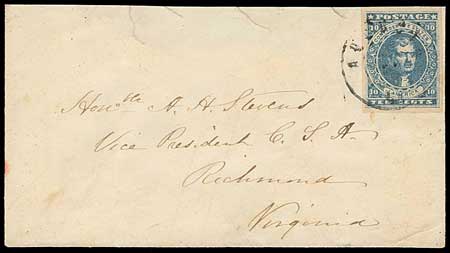 POSTAGE
10 10
10 10
TEN CENTS
Honble A. H. Stevens
Vice President C. S. A.
Richmond
Virginia